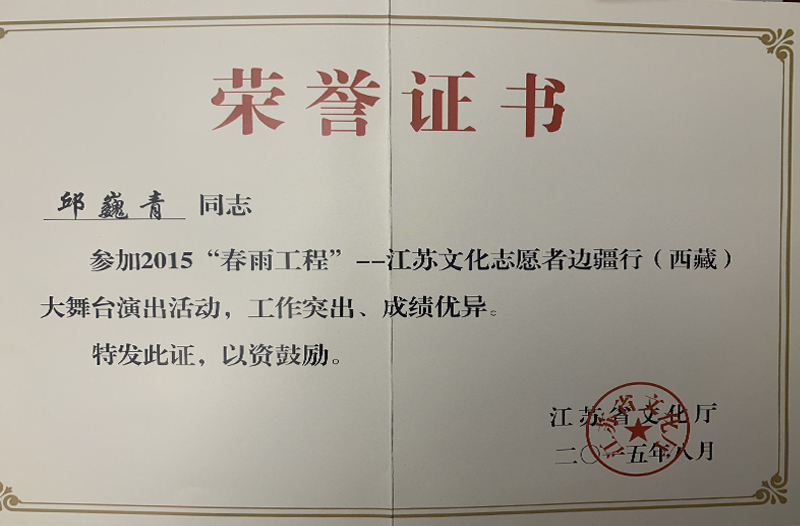 荣誉证书
邱巍青 同志
参加2015“春雨工程”--江苏文化志愿者边疆行（西藏）
大舞台演出活动，工作突出、成绩优异。
特发此证，以资鼓励。
江苏省文化厅
二〇一五年八月
江苏省文化厅